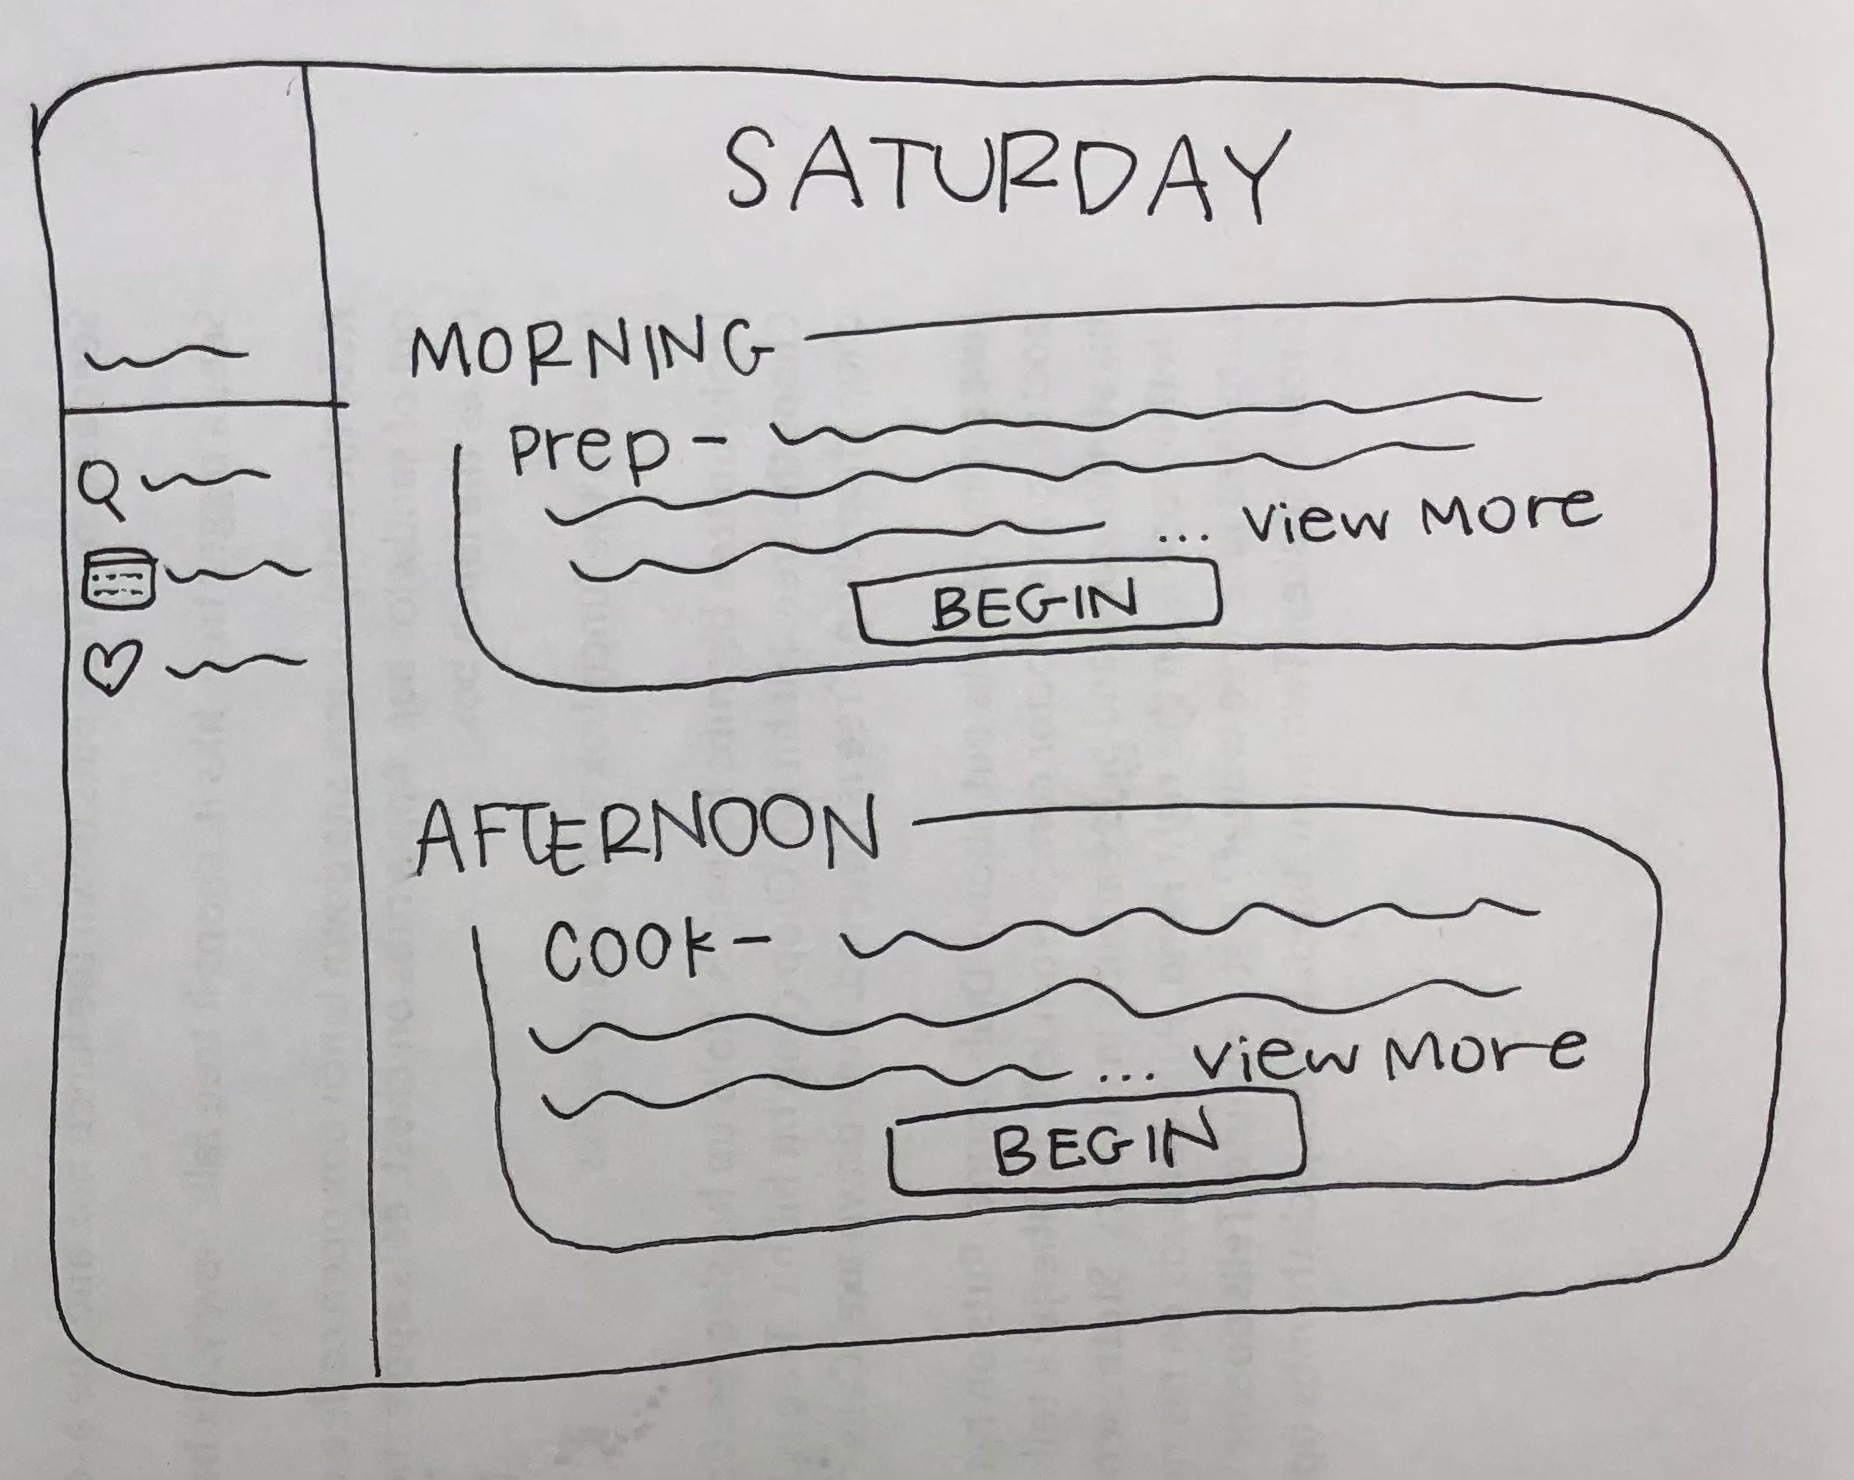 SATURDAY
MORNING
Prep -
... View More
BEGIN
AFTERNOON
COOK -
... View More
BEGIN